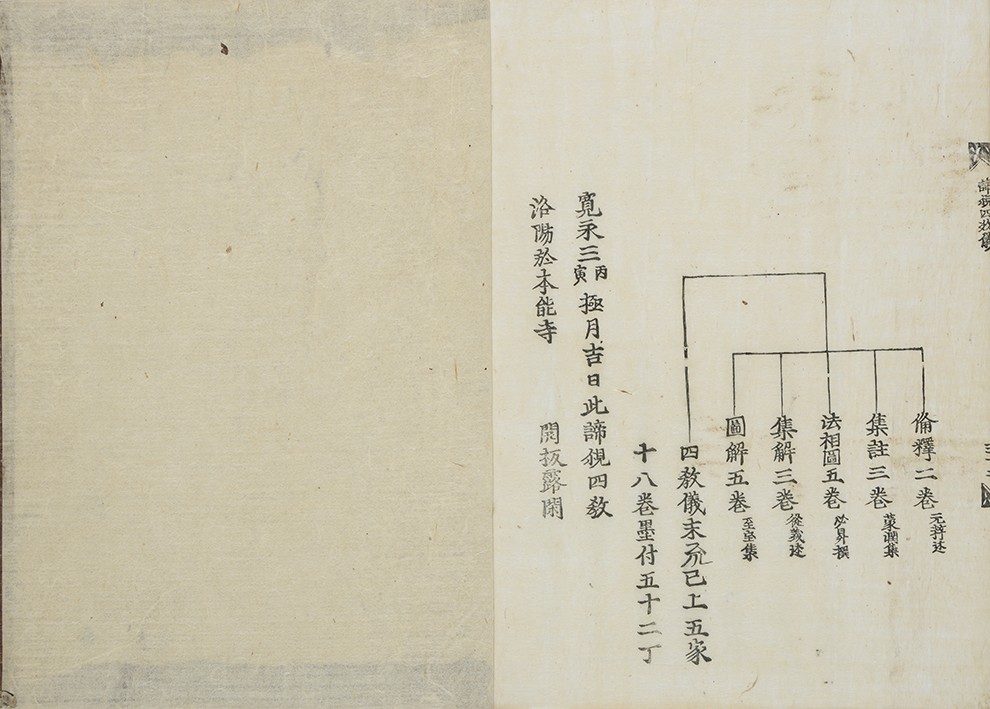 諦観四教儀
備釋二巻 元粹述
集註三巻 蒙潤集
法相圖五巻 必昇撰
集解三巻 從義述
圖解五巻 至室集
四教儀末疏已上五家
十八巻墨付五十二丁
寛永三丙寅極月吉日此諦観四教
洛陽於本能寺 開板露閑